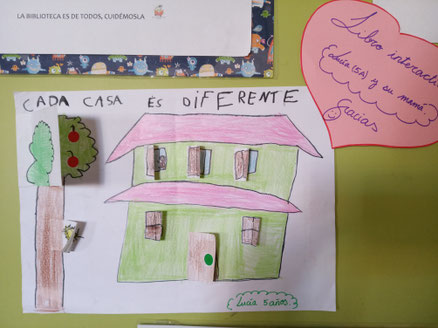 LA BIBLIOTECA ES DE TODOS, CUIDÉMOSLA
CADA CASA ES DIFERENTE
Libro interacti
(5A) y su mamá.
Gracias
Lucía 5 años.